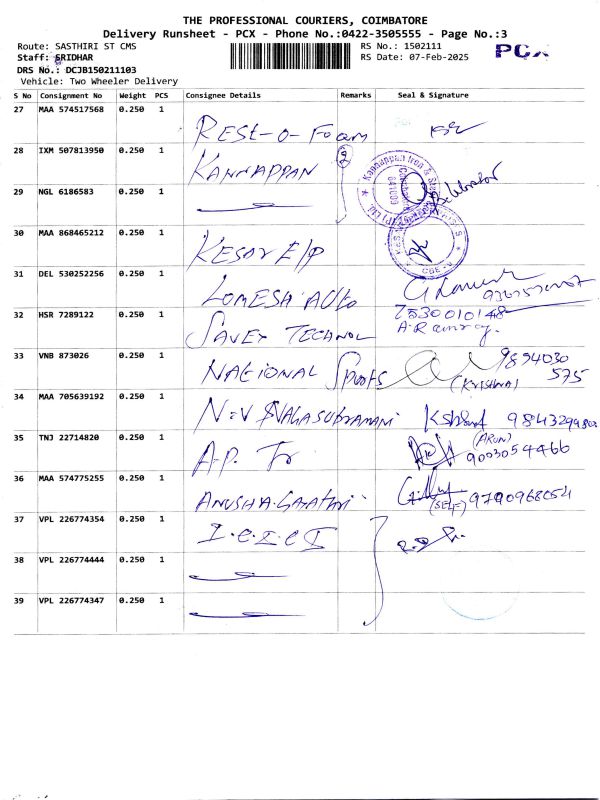 THE PROFESSIONAL COURIERS, COIMBATORE
Delivery Runsheet - PCX - Phone No.:0422-3505555 - Page No.:3
Route: SASTHIRI ST CMS RS No.: 1502111 PCX
Staff: SRIDHAR RS Date: 07-Feb-2025
DRS No.: DCJB150211103
Vehicle: Two Wheeler Delivery
S No Consignment No Weight PCS Consignee Details Remarks Seal & Signature
27 MAA 574517568 0.250 1 REST-O-Foam
28 IXM 507813950 0.250 1 KANNAPPAN 2
29 NGL 6186583 0.250 1
30 MAA 868465212 0.250 1 KESAV E/P
31 DEL 530252256 0.250 1 LOMESH AUTO
32 HSR 7289122 0.250 1 SAVEX TECHNOL 7530010148
33 VNB 873026 0.250 1 NATIONAL Sports 9894030 575
(KRISHNA)
34 MAA 705639192 0.250 1 N.V NAGASUBRAMANI
35 TNJ 22714820 0.250 1 A.P. Tr (ARUN) 9003054466
36 MAA 574775255 0.250 1 ANUSHA GAYATHRI (SELF) 9790968654
37 VPL 226774354 0.250 1 I.C.I.C I
38 VPL 226774444 0.250 1
39 VPL 226774347 0.250 1